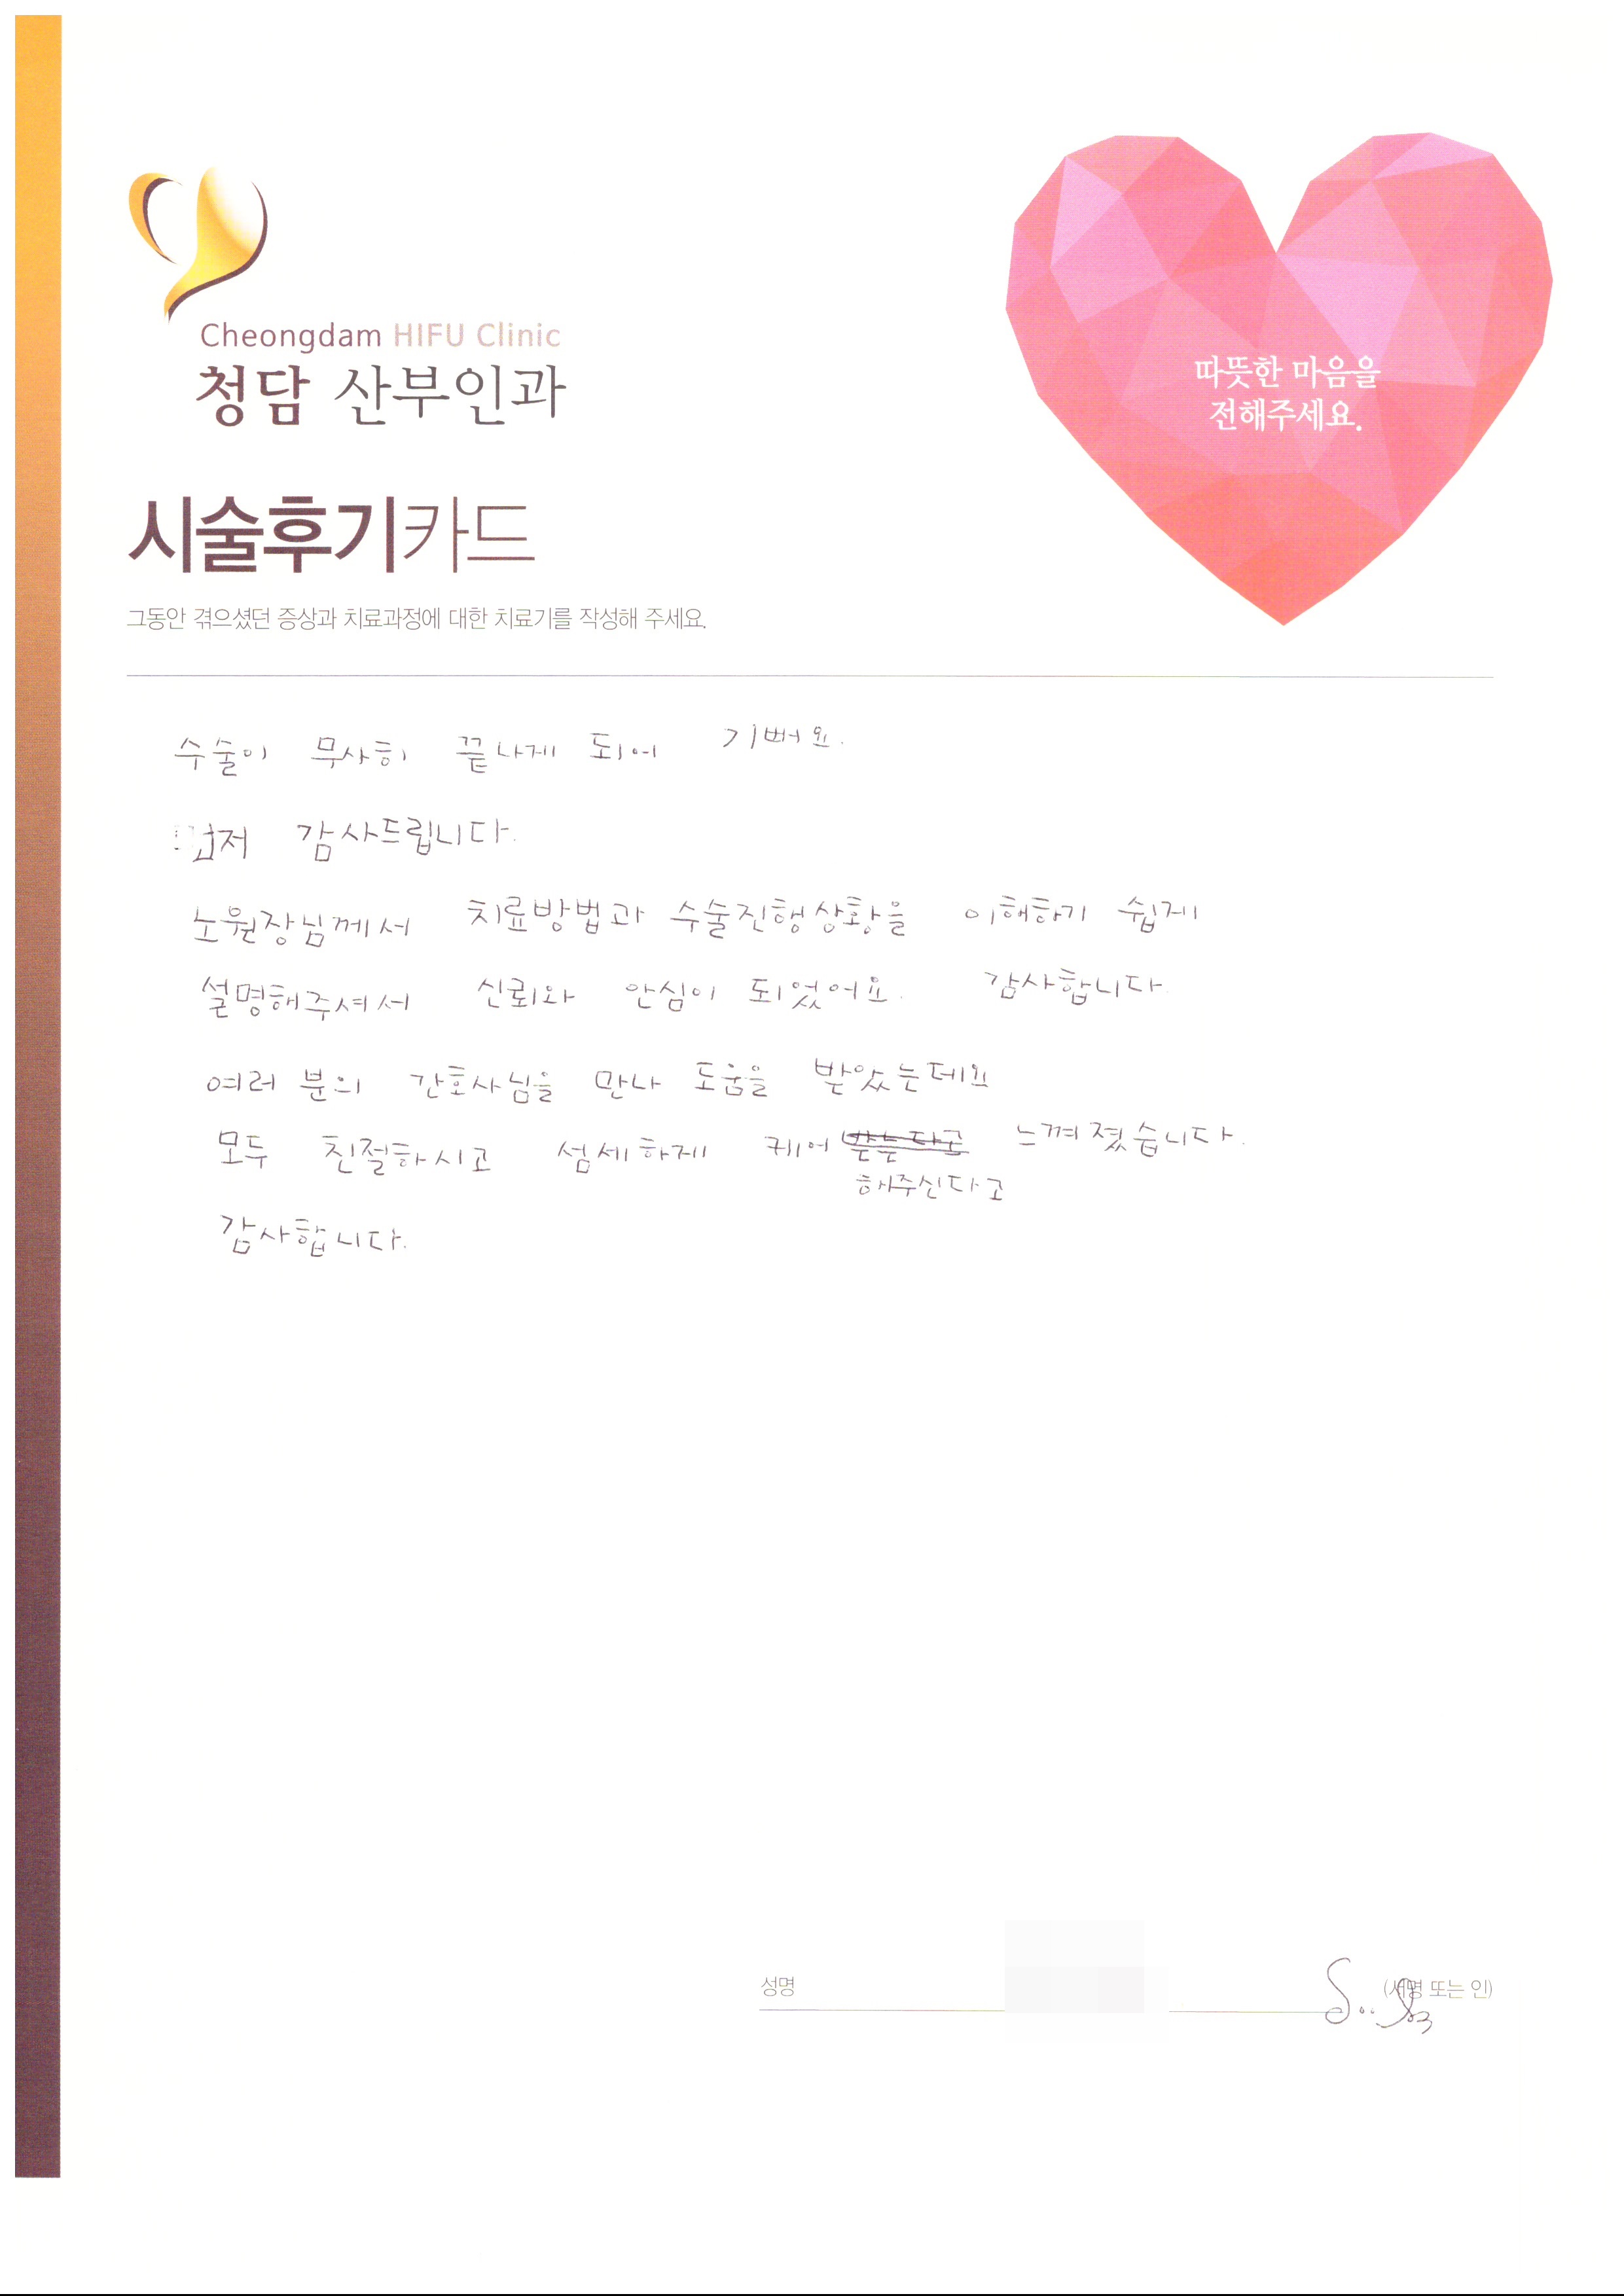 Cheongdam HIFU Clinic
청담 산부인과
따뜻한 마음을
전해주세요.
시술후기카드
그동안 겪으셨던 증상과 치료과정에 대한 치료기를 작성해 주세요.
수술이 무사히 끝나게 되어 기뻐요.
먼저 감사드립니다.
노원장님께서 치료방법과 수술진행상황을 이해하기 쉽게
설명해주셔서 신뢰와 안심이 되었어요. 감사합니다
여러 분의 간호사님을 만나 도움을 받았는데요
모두 친절하시고 섬세하게 케어 받는다고 느껴졌습니다.
해주신다고
감사합니다.
성명 (서명 또는 인)